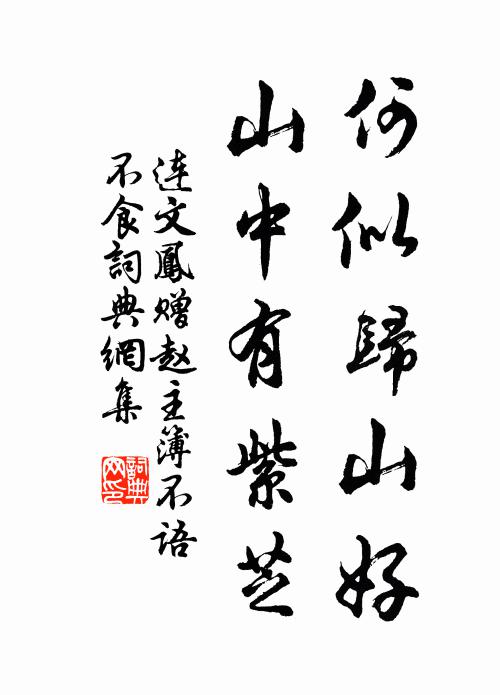 何似歸山好
山中有紫芝
连文鳳赠赵主簿不语
不食詞典網集
詞典网印